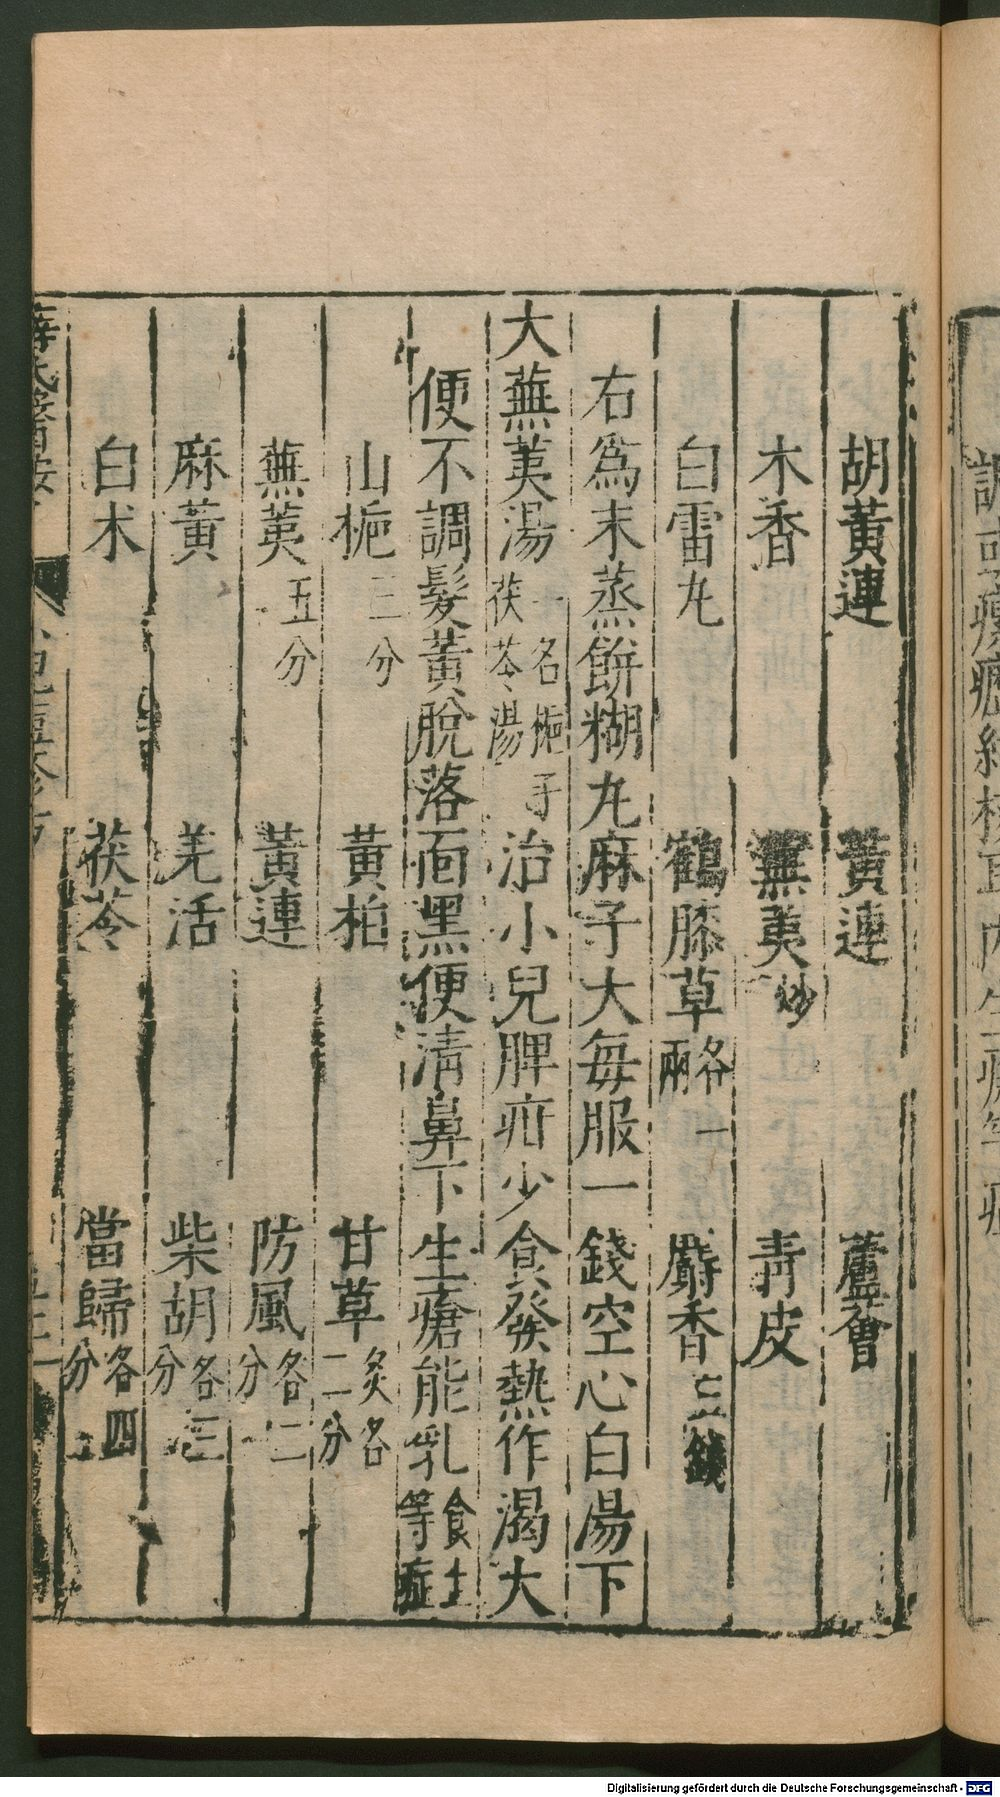 胡黃連 黃連 蘆薈
木香 蕪荑炒 青皮
白雷丸 鶴膝草各一兩 麝香三錢
右為末蒸餅糊丸麻子大每服一錢空心白湯下
大蕪荑湯一名梔子茯苓湯治小兒脾疳少食發熱作渴大
便不調髮黃脫落面黑便清鼻下生瘡能乳食土等症
山梔三分 黃柏 甘草炙各二分
蕪荑五分 黃連 防風各二分
麻黃 羌活 柴胡各三分
白朮 茯苓 當歸各四分
薛氏醫案
Digitalisierung gefördert durch die Deutsche Forschungsgemeinschaft - DFG